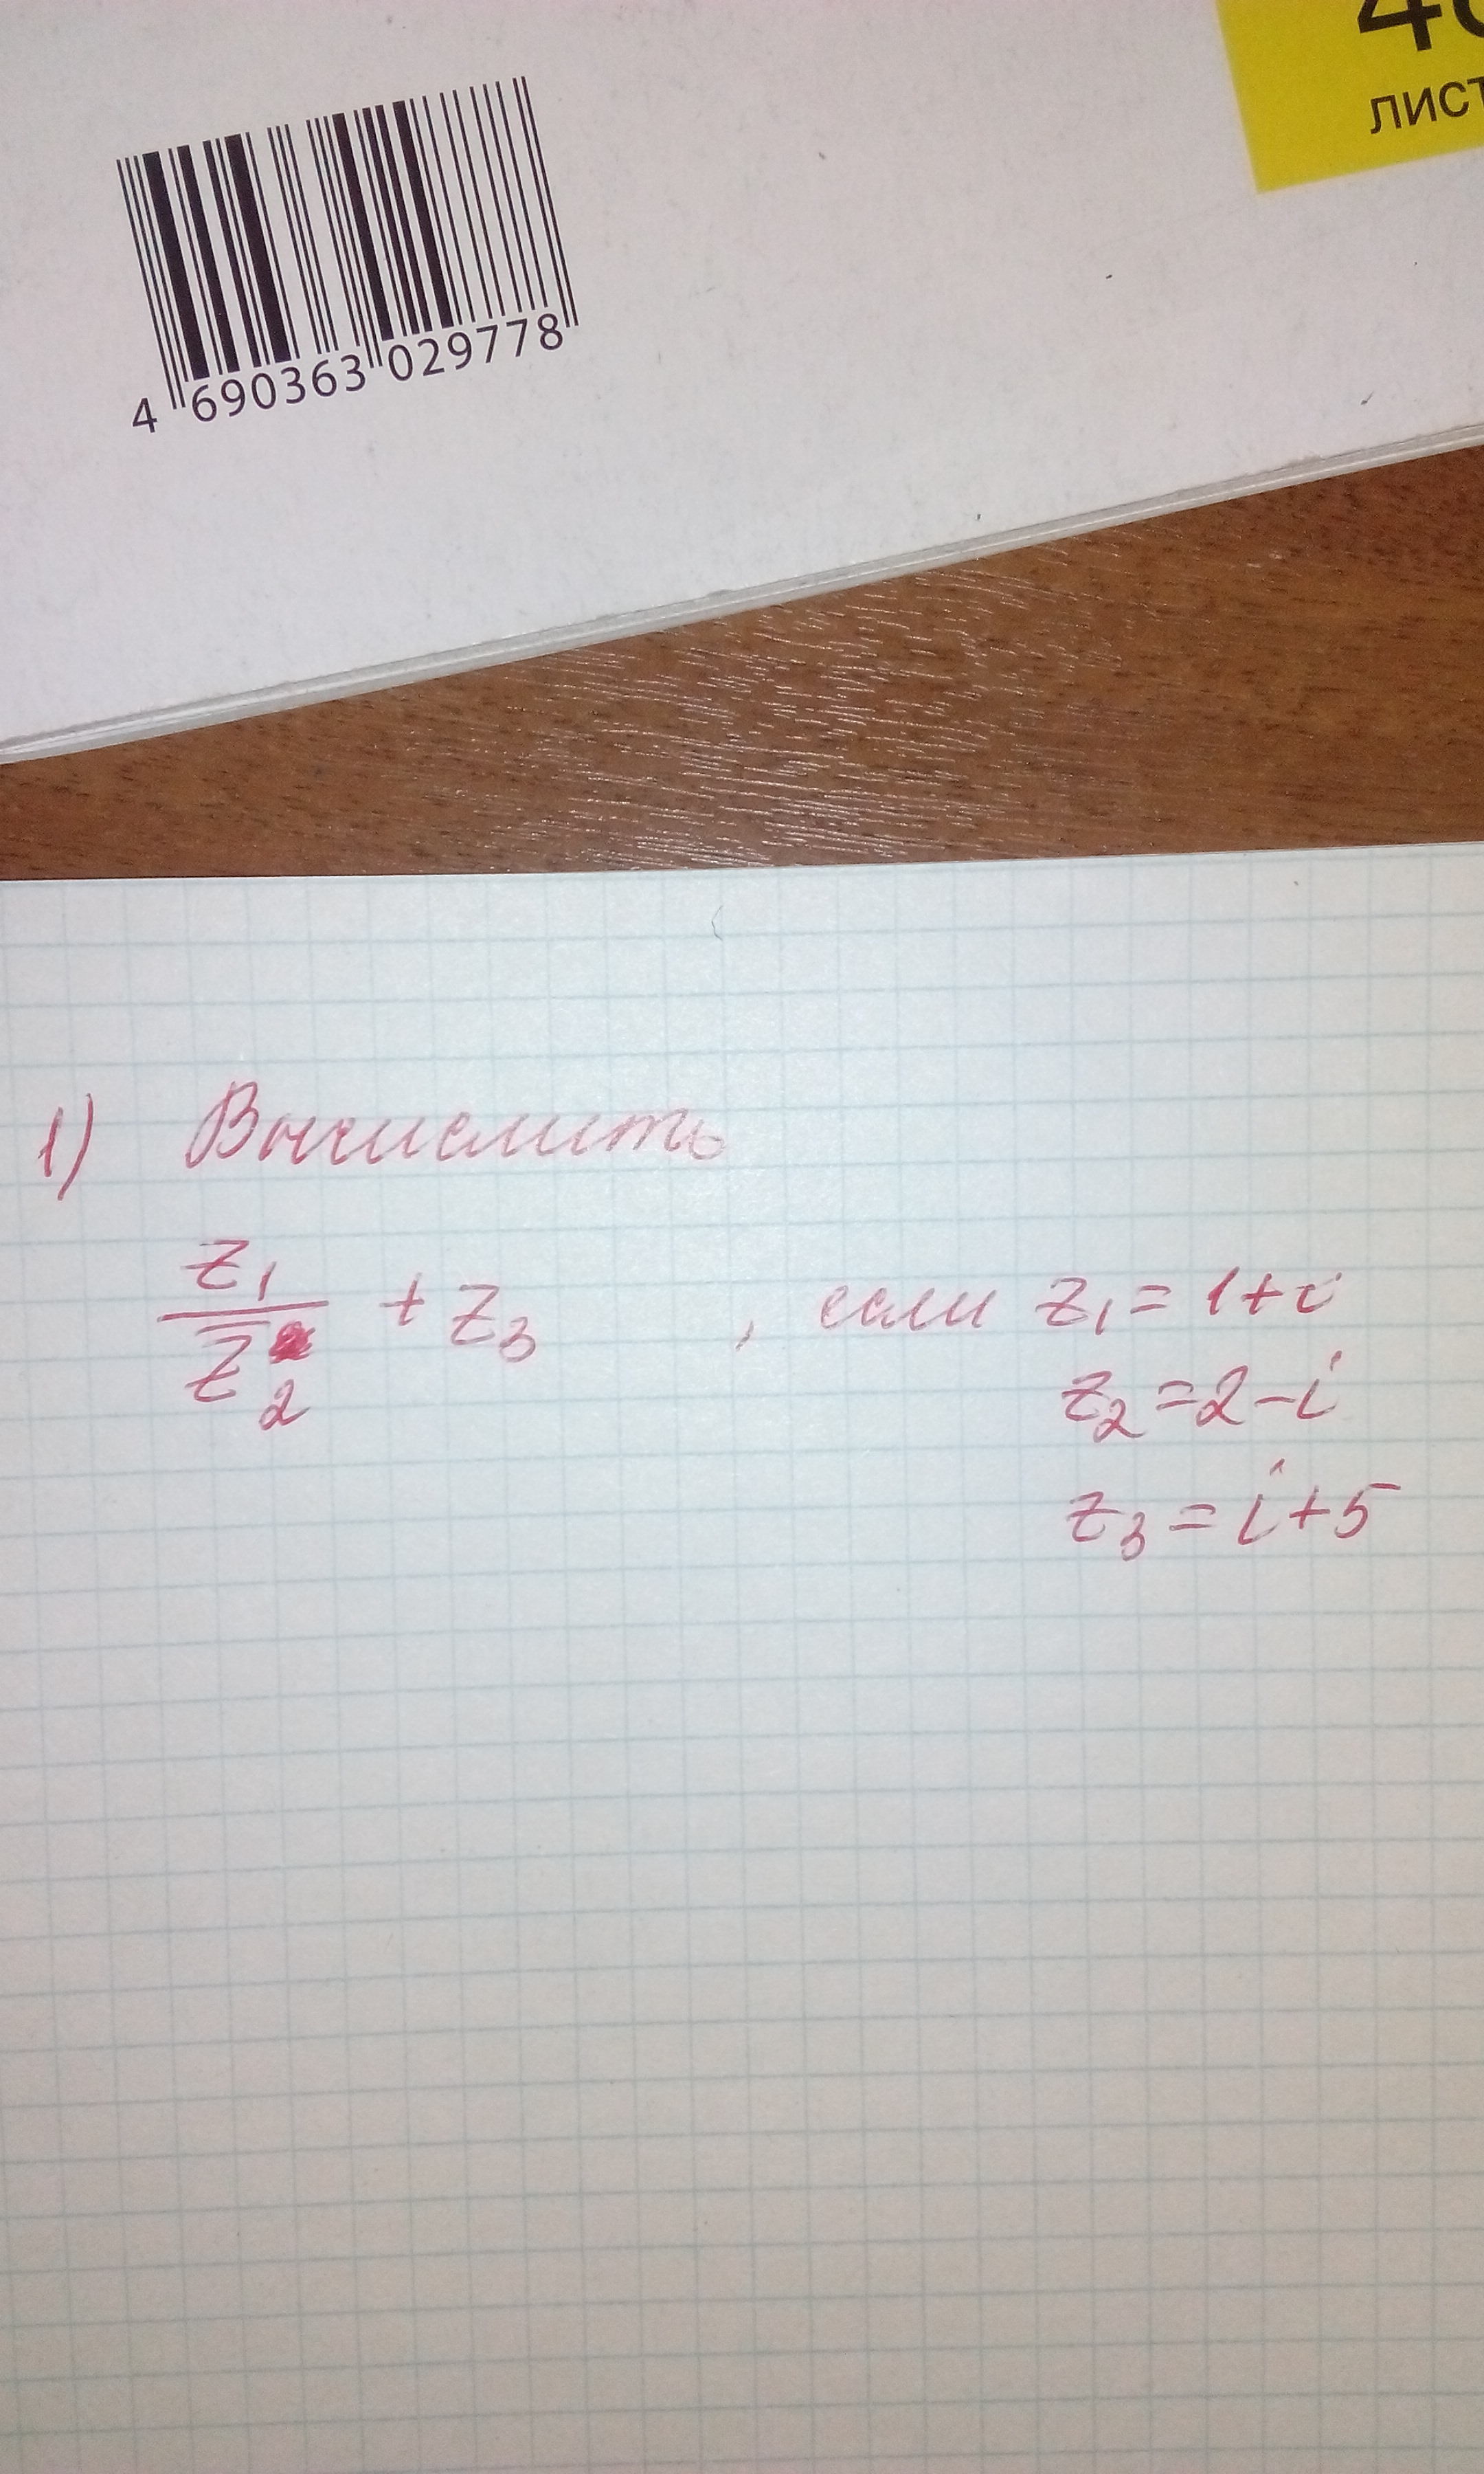 4
лист
4 690363 029778
1) Вычислить
z₁/z̅₂ + z₃ , если z₁ = 1+i
z₂ = 2-i
z₃ = i+5